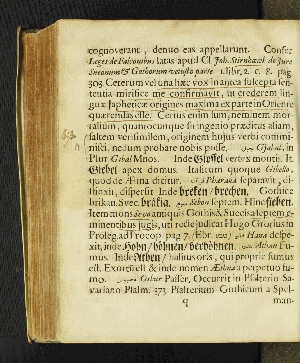 cognoverant, denuo eas appellarunt. Confer
Leges de Falconibus latas apud Cl. Joh. Stiernhook de Jure
Sueonum & Gothorum vetusto parte 1. libr. 2. c. 8. pag.
303. Ceterum vel una hæc vox in antea suscepta sen-
tentia mirifice me confirmavit, ut crederem lin-
guæ Japheticæ origines maxima ex parte in Oriente
quærendas esse. Certus enim sum, neminem mor-
talium, quantocunque sit ingenio præditus aliam,
saltem verisimilem, originem hujus verbi commi-
nisci, nedum probare nobis posse. Gjabal, in
Plur Gibal Mnos. Inde Gipffel vertex montis. It.
Giebel apex domus. Italicum quoque Gibello,
quod de Ætna dicitur. Pharaka separavit, di-
stinxit, dispersit Inde breken / brechen. Gothice
brikan. Svec. bräkia. Seben septem. Hinc sieben.
Item mons Sevo antiquis Gothis & Suecis a septem e-
minentibus jugis, uti recte judicat Hugo Grotius in
Proleg. ad Procop. pag 7. (Hbr. ) Hana despe-
xit, inde Hohn / höhnen / verhöhnen. Athan Fu-
mus. Inde Athem / halitus oris, qui proprie fumus
est. Exongvell & inde nomen Æthnæ a perpetuo fu-
mo. Gibur Passer, Occurrit in Psalterio Sa-
variano Psalm. 373 Psalterium Gothicum a Spel-
q man-